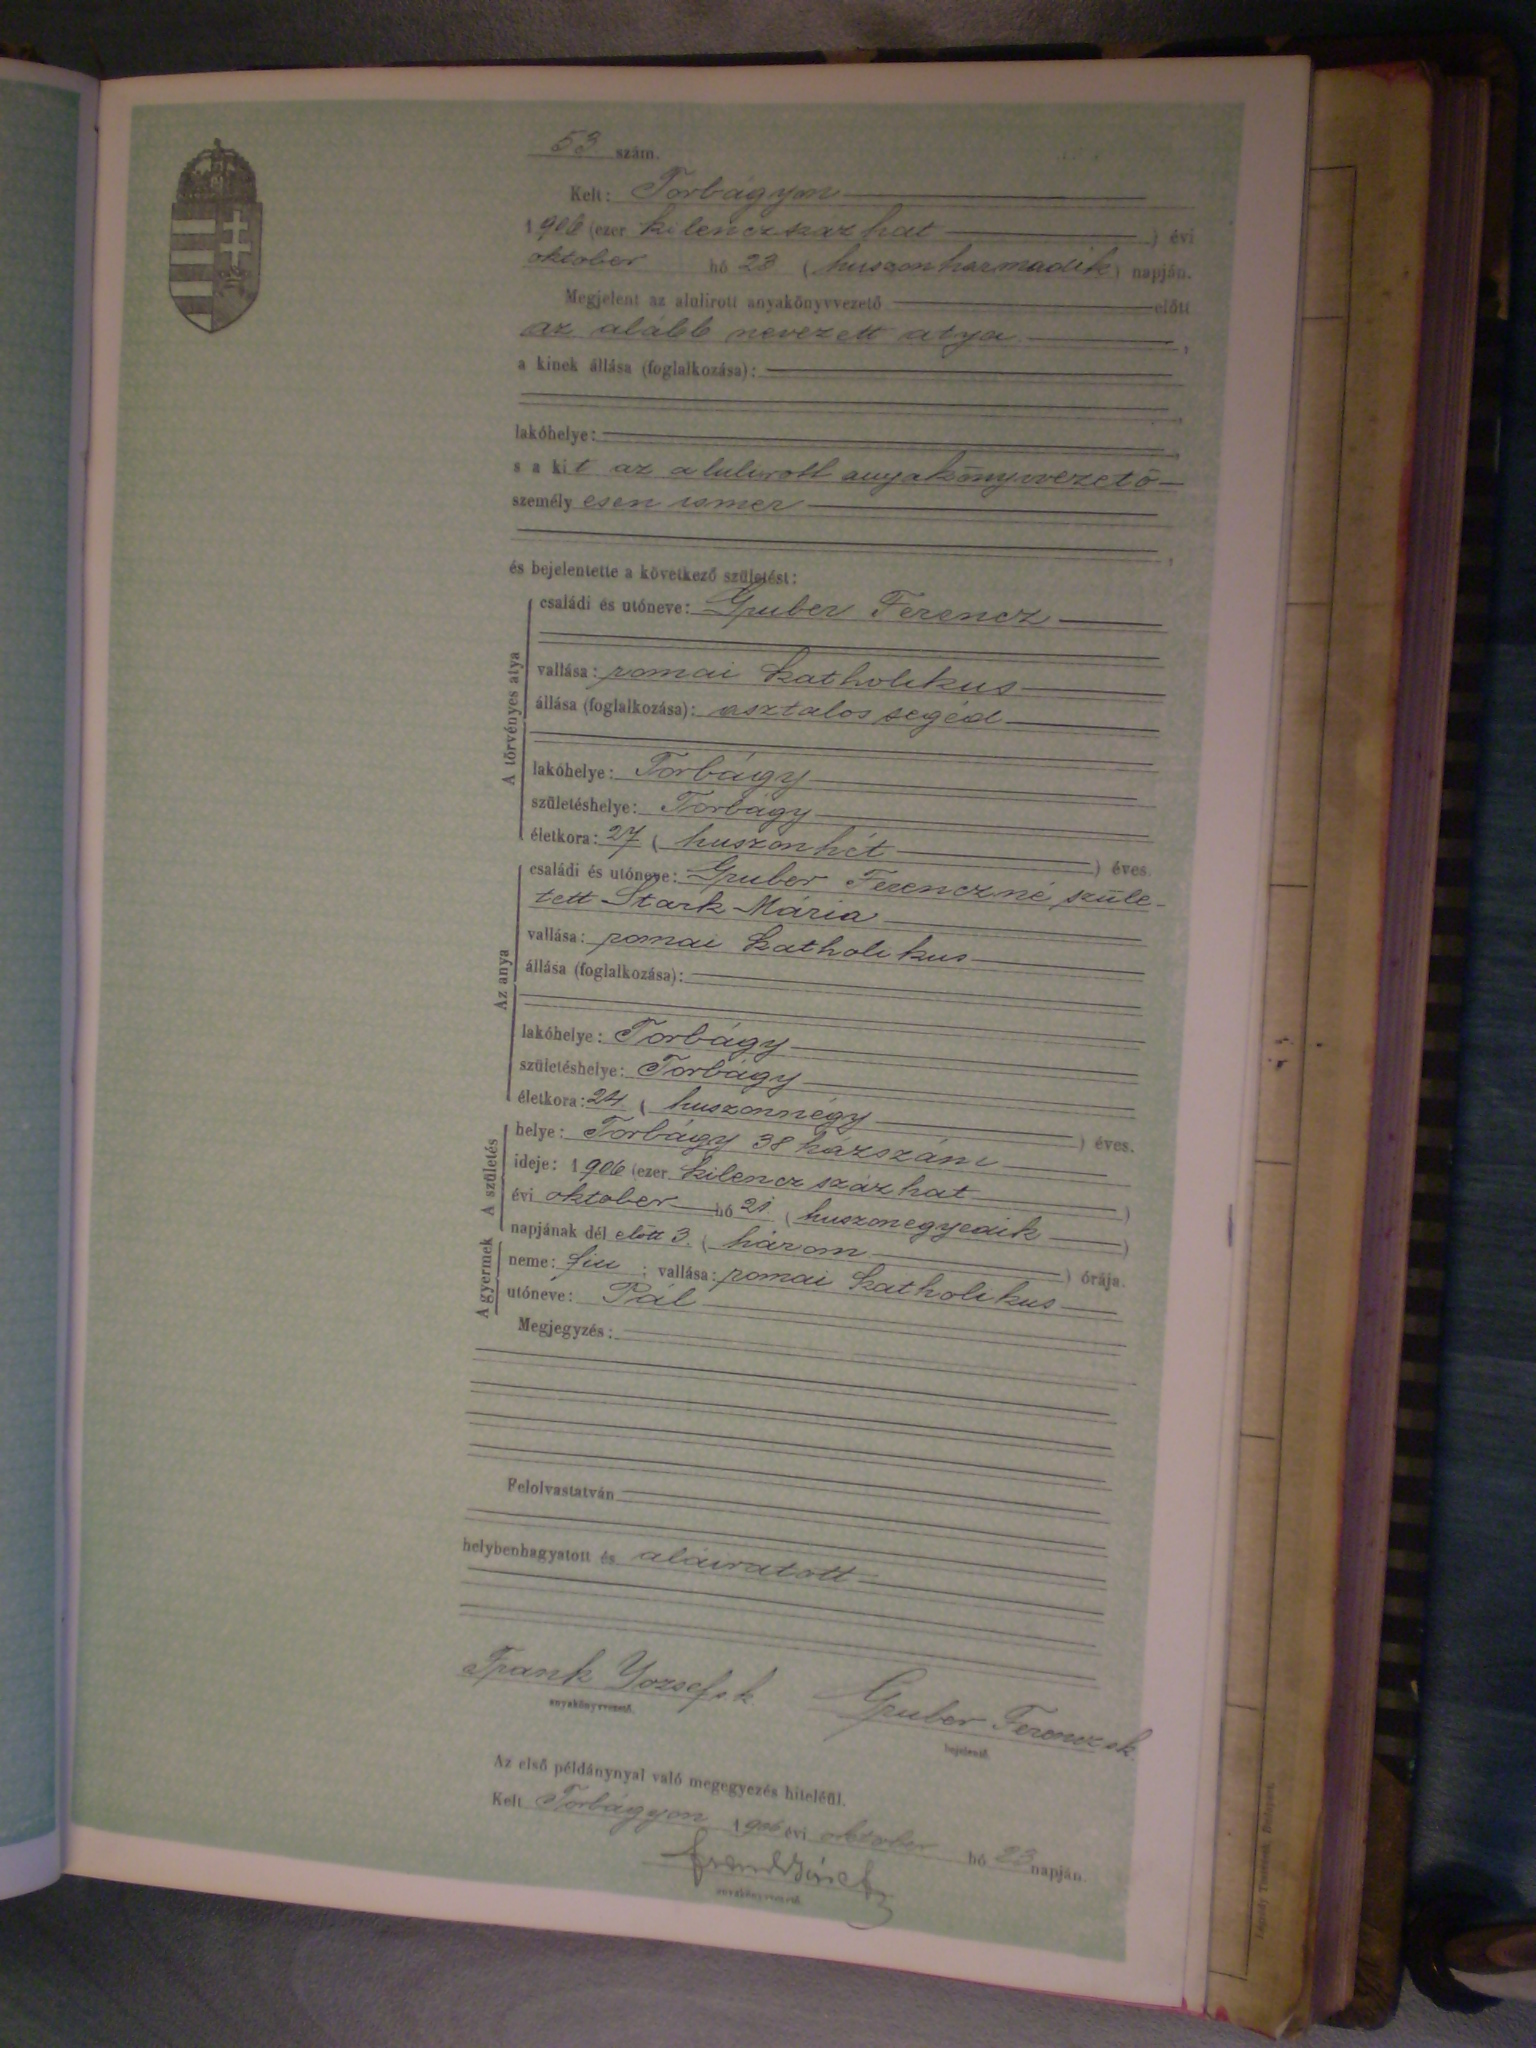 53 szám.
Kelt: Torbágyon
1906 (ezer kilenczszáz hat ) évi
oktober hó 23 ( huszonharmadik ) napján.
Megjelent az alulirott anyakönyvvezető előtt
az alább nevezett atya ,
a kinek állása (foglalkozása):
,
lakóhelye: ,
s a kit az alulirott anyakönyvvezető
személy esen ismer
,
és bejelentette a következő születést:
A törvényes atya
családi és utóneve: Gruber Ferencz
vallása: romai katholikus
állása (foglalkozása): asztalos segéd
lakóhelye: Torbágy
születéshelye: Torbágy
életkora: 27 ( huszonhét ) éves.
Az anya
családi és utóneve: Gruber Ferenczné szüle-
tett Stark Mária
vallása: romai katholikus
állása (foglalkozása):
lakóhelye: Torbágy
születéshelye: Torbágy
életkora: 24 ( huszonnégy ) éves.
A születés
helye: Torbágy 38 házszám
ideje: 1906 (ezer kilencz száz hat )
évi oktober hó 21. ( huszonegyedik )
napjának dél előtt 3. ( három ) órája.
A gyermek
neme: fiu ; vallása: romai katholikus
utóneve: Pál
Megjegyzés:
Felolvastatván
helybenhagyatott és aláiratott
Frank József s.k. Gruber Ferencz sk.
anyakönyvvezető. bejelentő.
Az első példánynyal való megegyezés hiteléül.
Kelt Torbágyon 1906 évi oktober hó 23 napján.
anyakönyvvezető.